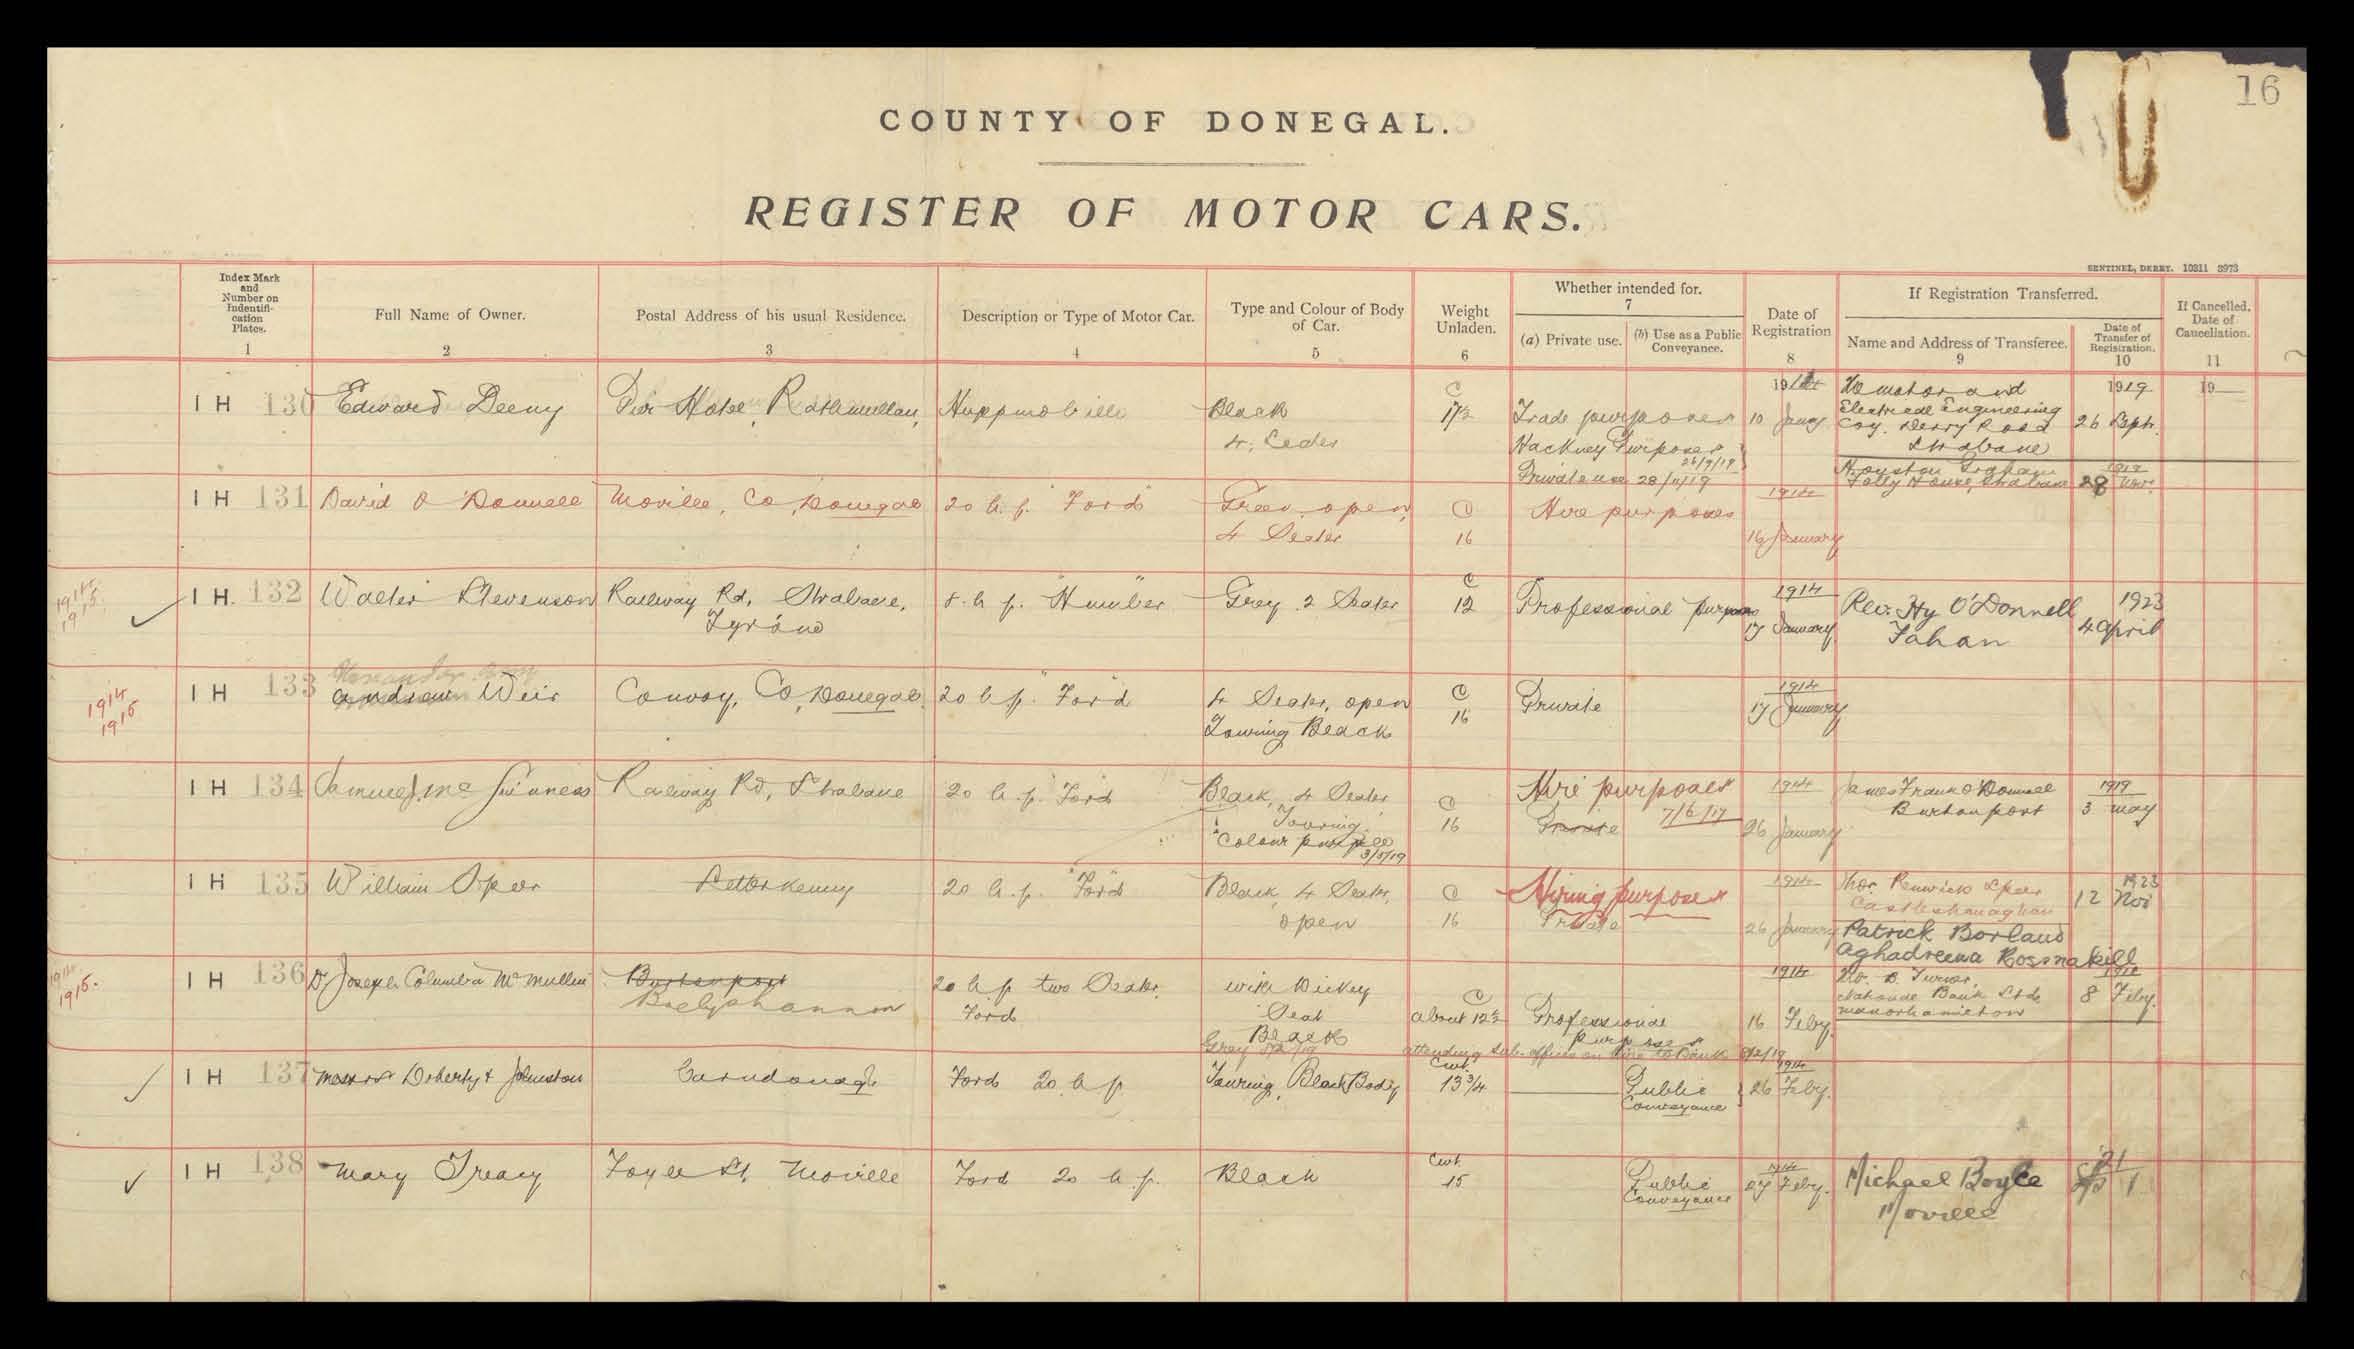 16
COUNTY OF DONEGAL.
REGISTER OF MOTOR CARS.
SENTINEL, DERRY. 10311 3973
Index Mark and Number on Indentifi-cation Plates.
1
Full Name of Owner.
2
Postal Address of his usual Residence.
3
Description or Type of Motor Car.
4
Type and Colour of Body of Car.
5
Weight Unladen.
6
Whether intended for.
7
(a) Private use.
(b) Use as a Public Conveyance.
Date of Registration
8
If Registration Transferred.
Name and Address of Transferee.
9
Date of Transfer of Registration.
10
If Cancelled, Date of Cancellation.
11
I H 130 Edward Deeny Pier Hotel, Rathmullan, Huppmobille Black C 17½ Trade purposes 1914 10 Jany The motor and 1919 19
4, Seater Hackney Purposes 26/9/19 Electrical Engineering Coy. Derry Road Strabane 26 Sept.
Private use 28/11/19 Houston Graham Folly House, Strabane 28 Nov.
I H 131 David O'Donnell Moville, Co, Donegal 20 h.p. "Ford" Green open, C Hire purposes 1914
4 Seater 16 16 January
1914 1915 I H. 132 Walter Stevenson Railway Rd, Strabane, 8. h p. "Humber" Grey 2 Seater C 12 Professional purposes 1914 Rev. Hy O'Donnell 1923
Tyrone 17 January Fahan 4 April
1914 1915 I H 133 Andrew Weir Convoy, Co, Donegal 20 h p. "Ford" 4 Seater, open C 16 Private 1914 17 January
Touring Black
I H 134 Samuel J. Mc Guinness Railway Rd, Strabane 20 h.p. "Ford" Black, 4 Seater C Hire purposes 1914 James Frank O'Donnell 1919
Touring 16 Private 7/6/17 26 January Burtonport 3 May
Colour purple 3/5/19
I H 135 William Speer Letterkenny 20 h.p. "Ford" Black, 4 Seater, C Hiring purposes 1914 Thos. Renwick Speer 1923
open 16 Private 26 January Castleshanaghan 12 Nov
Patrick Borland
Aghadreena Rossnakill
1914 1915. I H 136 Dr Joseph Columba McMullin Burtonport 20 h p two Seater, with Dickey C 1914
Ballyshannon Ford Seat about 12½ Professional 16 Feby. National Bank Ltd. 8 Feby.
Black purposes Manorhamilton
Grey attending sub-offices
I H 137 Messrs Doherty & Johnston Carndonagh Ford 20 h p. Touring, Black Body Cwt. 13¾ Public Conveyance 1914 26 Feby.
I H 138 Mary Treacy Foyle St, Moville Ford 20 h.p. Black Cwt. 15 Public Conveyance 1914 27 Feby. Michael Boyle 21
Moville